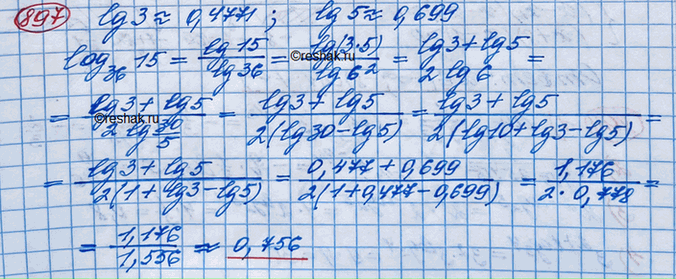 897) lg 3 ≈ 0,4771 ; lg 5 ≈ 0,699
log₃₆ 15 = lg 15 / lg 36 = lg(3·5) / lg 6² = (lg 3 + lg 5) / (2 lg 6) =
©reshak.ru
= (lg 3 + lg 5) / (2 lg 30/5) = (lg 3 + lg 5) / (2(lg 30 − lg 5)) = (lg 3 + lg 5) / (2(lg 10 + lg 3 − lg 5)) =
©reshak.ru
= (lg 3 + lg 5) / (2(1 + lg 3 − lg 5)) = (0,477 + 0,699) / (2(1 + 0,477 − 0,699)) = 1,176 / (2 · 0,778) =
= 1,176 / 1,556 ≈ 0,756